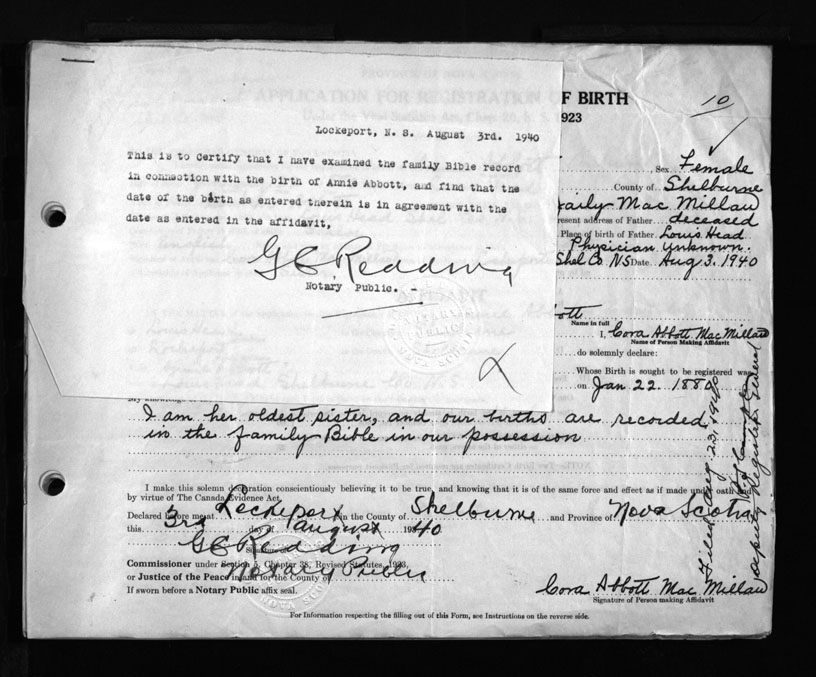 OF BIRTH
1923
10
Lockeport, N. S. August 3rd. 1940
This is to certify that I have examined the family Bible record
in connection with the birth of Annie Abbott, and find that the
date of the birth as entered therein is in agreement with the
date as entered in the affidavit,
G C Redding
Notary Public.
Sex Female
County of Shelburne
Mac Millan
present address of Father deceased
Place of birth of Father Louis Head
Physician Unknown.
Shel Co. NS Date Aug 3. 1940
Name in full
I, Cora Abbott Mac Millan
Name of Person Making Affidavit
do solemnly declare:
Whose Birth is sought to be registered was
on Jan 22. 1880
I am her oldest sister, and our births are recorded
in the family Bible in our possession
I make this solemn declaration conscientiously believing it to be true, and knowing that it is of the same force and effect as if made under oath and
by virtue of The Canada Evidence Act.
Declared before me at Lockeport in the County of Shelburne and Province of Nova Scotia
this 3rd day of August 1940
G C Redding
Signature of
Notary Public
Commissioner under Section 5, Chapter 38, Revised Statutes, 1923,
or Justice of the Peace in and for the County of
If sworn before a Notary Public affix seal.
Cora Abbott Mac Millan
Signature of Person making Affidavit
For Information respecting the filling out of this Form, see Instructions on the reverse side.
Filed Aug. 23, 1940
Deputy Registrar General